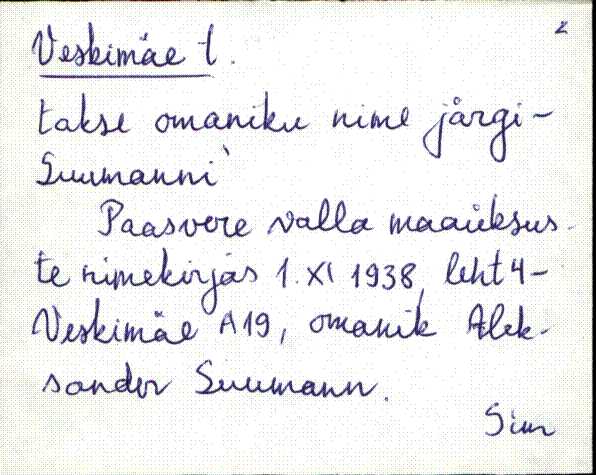 2
Veskimäe t.
takse omaniku nime järgi-
Suumanni`
Paasvere valla maaüksus-
te nimekirjas 1. XI 1938, leht 4-
Veskimäe A19, omanik Alek-
sander Suumann.
Sim